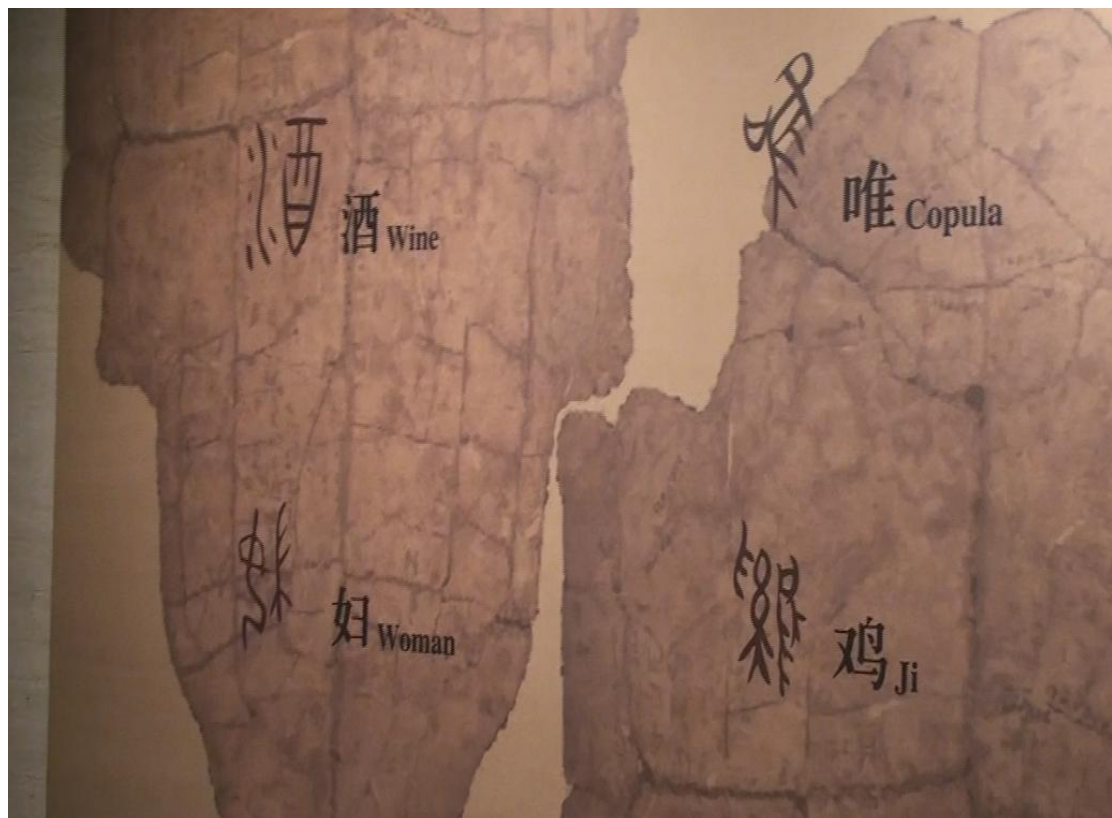 酒 Wine
唯 Copula
妇 Woman
鸡 Ji